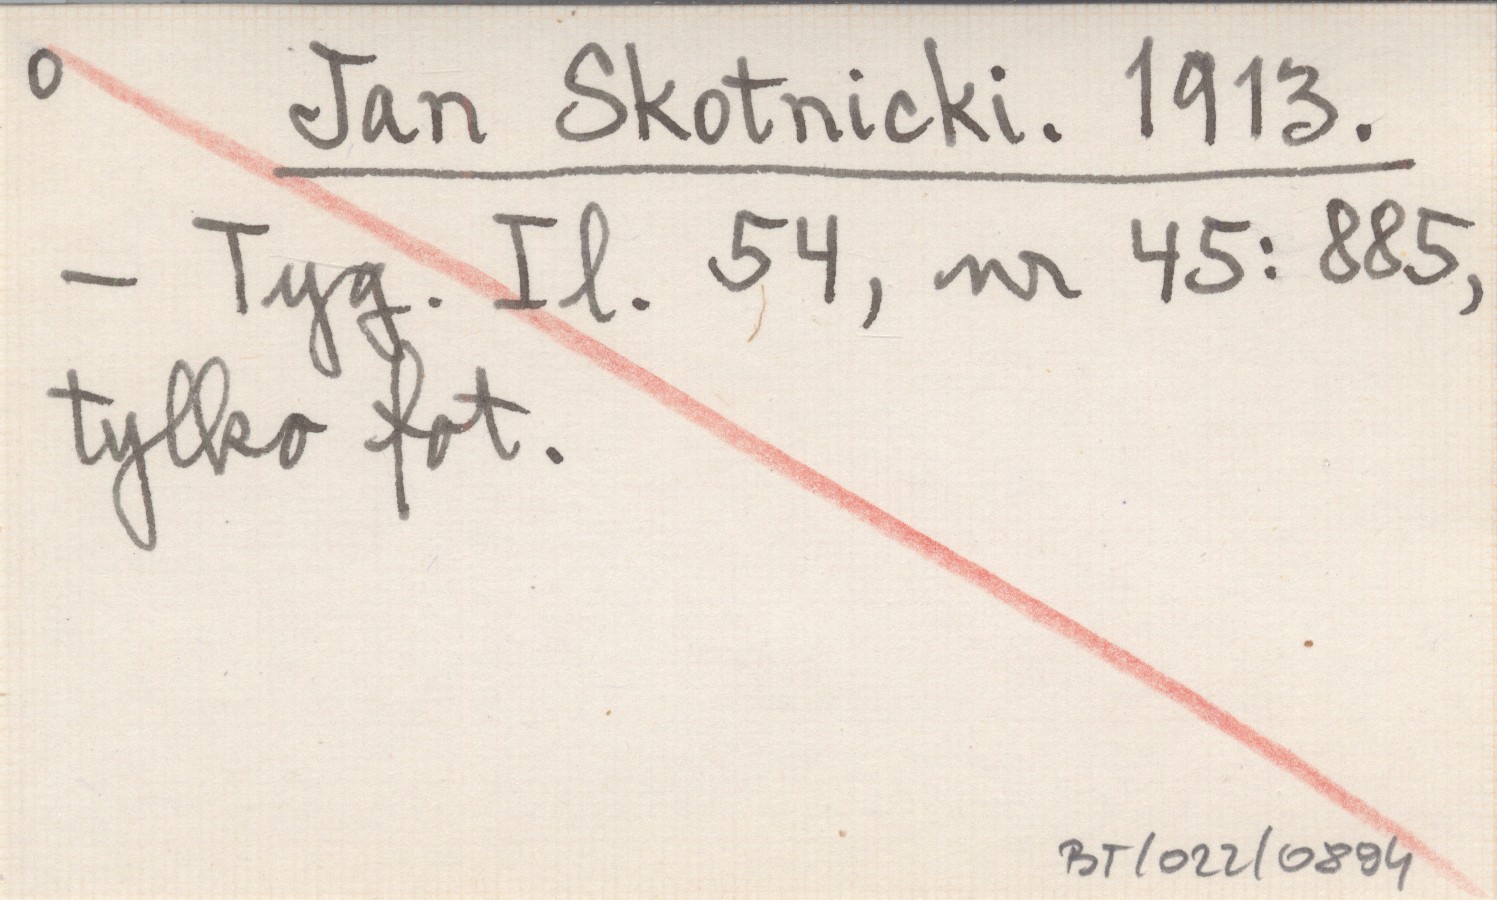 o Jan Skotnicki. 1913.
- Tyg. Il. 54, nr 45: 885,
tylko fot.
BT/022/0894